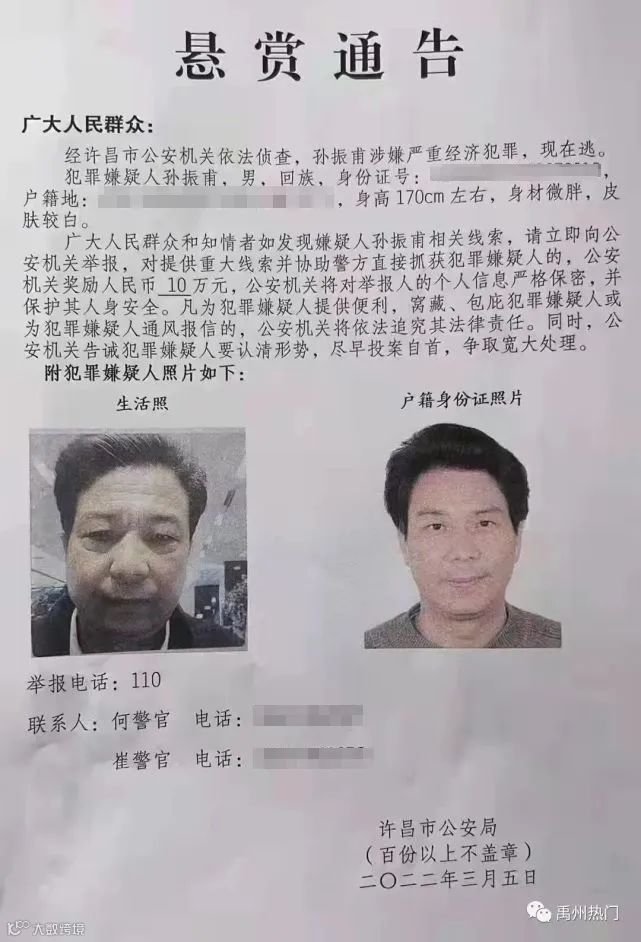 悬赏通告
广大人民群众：
经许昌市公安机关依法侦查，孙振甫涉嫌严重经济犯罪，现在逃。
犯罪嫌疑人孙振甫，男，回族，身份证号：，
户籍地：，身高170cm左右，身材微胖，皮
肤较白。
广大人民群众和知情者如发现嫌疑人孙振甫相关线索，请立即向公
安机关举报，对提供重大线索并协助警方直接抓获犯罪嫌疑人的，公安
机关奖励人民币 10 万元，公安机关将对举报人的个人信息严格保密，并
保护其人身安全。凡为犯罪嫌疑人提供便利，窝藏、包庇犯罪嫌疑人或
为犯罪嫌疑人通风报信的，公安机关将依法追究其法律责任。同时，公
安机关告诫犯罪嫌疑人要认清形势，尽早投案自首，争取宽大处理。
附犯罪嫌疑人照片如下：
生活照
户籍身份证照片
举报电话：110
联系人：何警官 电话：
崔警官 电话：
许昌市公安局
（百份以上不盖章）
二〇二二年三月五日
大数跨境
禹州热门